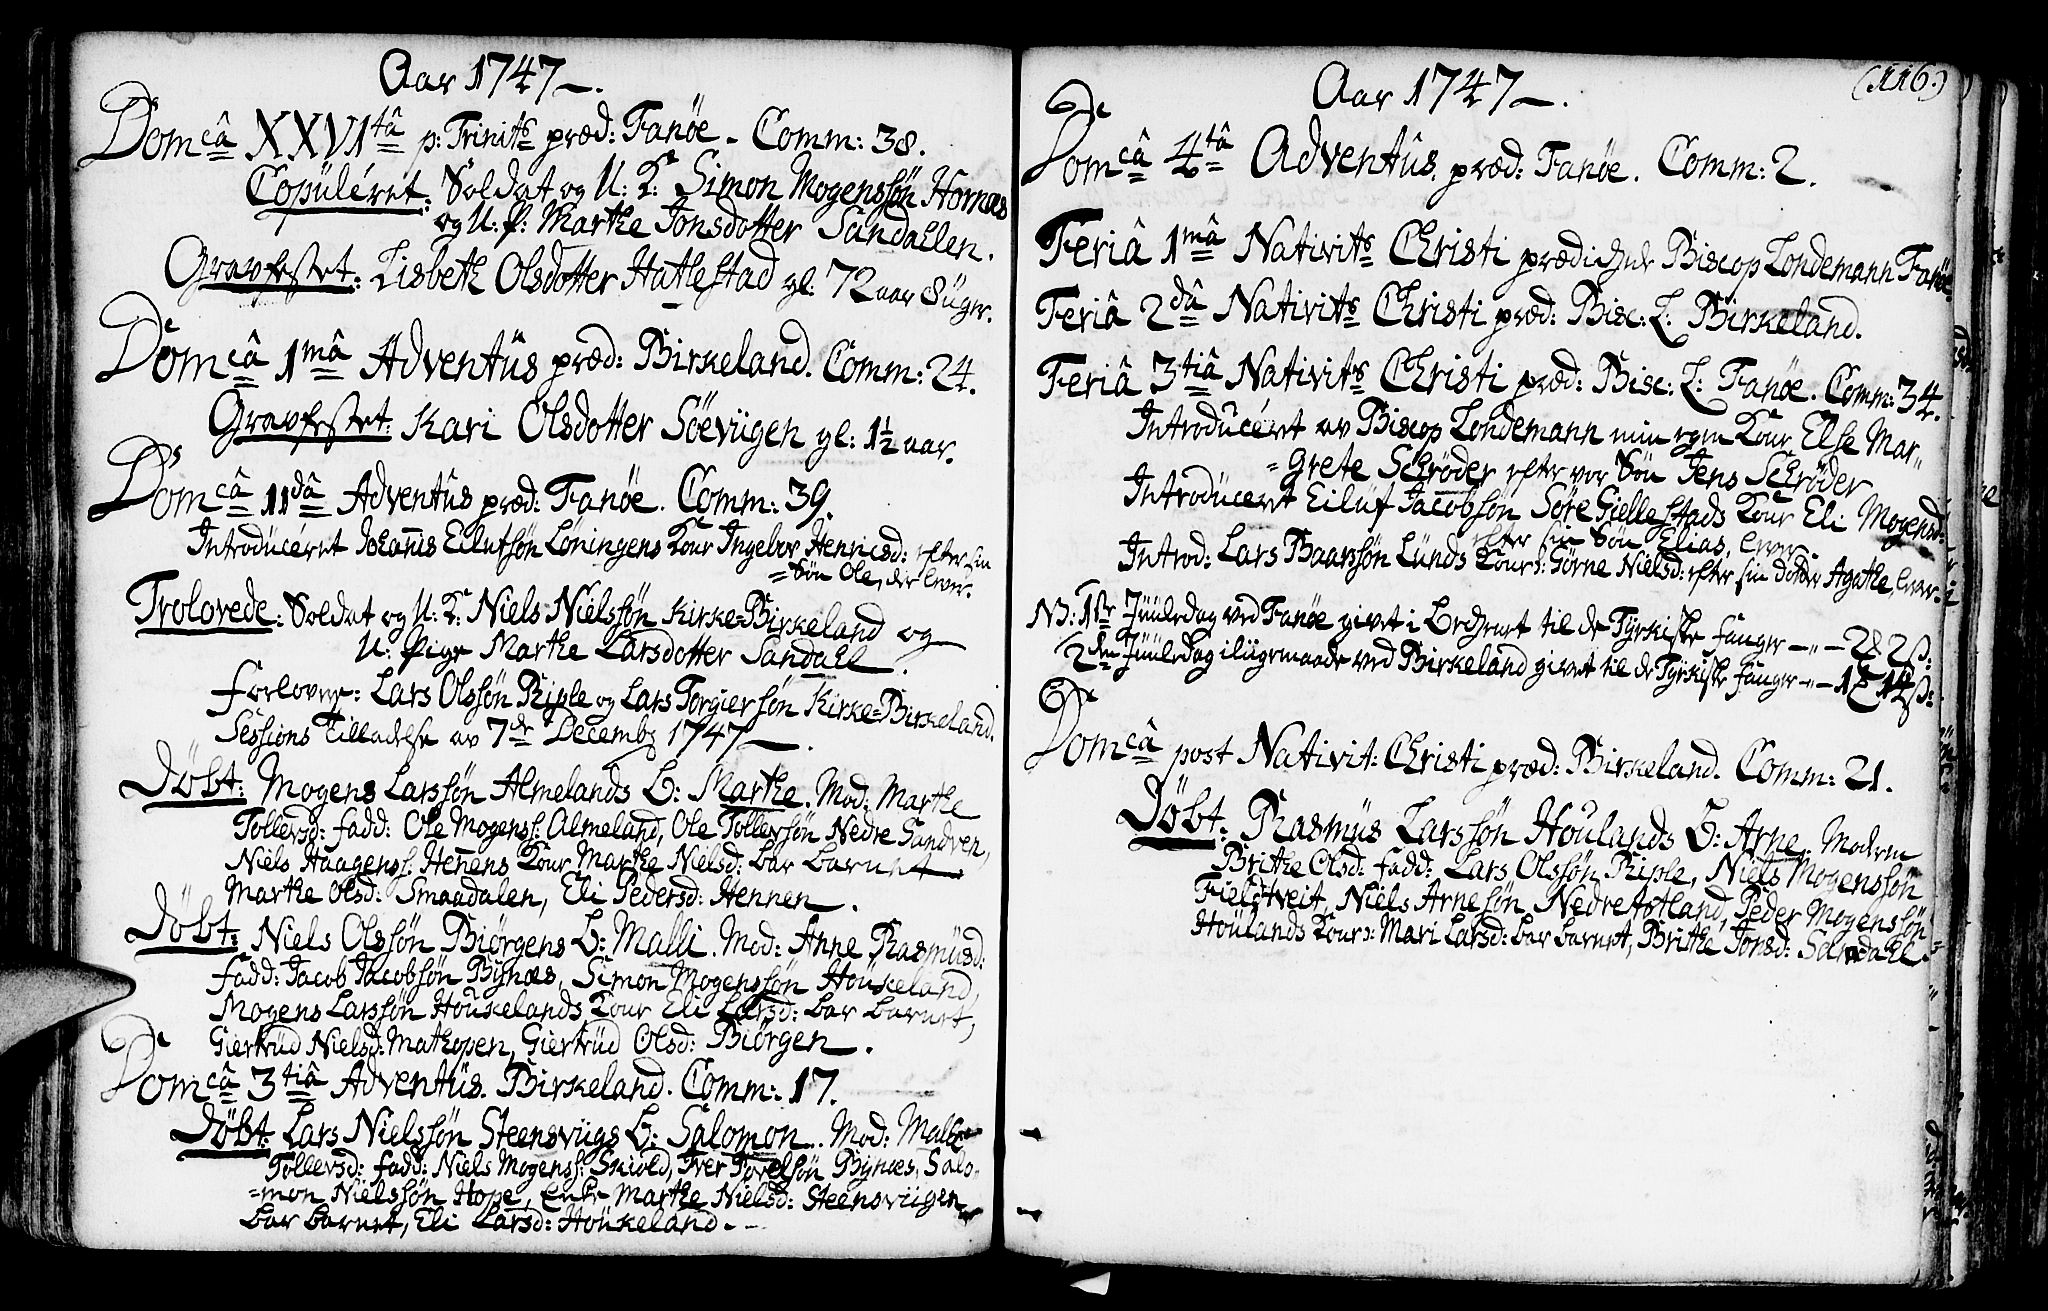 Aar 1747 –.
Domcâ XXVItâ p: Trinits præd: Fanöe – Comm: 38.
Copuleret: Soldat og U: K: Simon Mogenssön Hornæs
og U: P: Marthe Jonsdotter Sandahlen.
Gravfestet: Lisbeth Olsdotter Hatlestad gl: 72 aar 8 üger.
Domcâ 1mâ Adventüs præd: Birkeland. Comm: 24.
Gravfestet: Kari Olsdotter Söevügen gl: 1½ aar.
Domcâ 11dâ Adventûs præd: Fanöe. Comm: 39.
Introdüceret Johañis Eilufsön Löningens Kone Ingebor Henricsd: efter sin
= Sön Ole, der lever.
Trolovede: Soldat og U: K: Niels Nielssön Kirke=Birkeland og
U: Pige Marthe Larsdotter Sandahl.
Forlovere: Lars Olssön Riple og Lars Torgiersön Kirke=Birkeland.
Sessions Tilladelse av 7de Decembr 1747 –.
Döbt: Mogens Larssön Almelands B: Marthe. Mod: Marthe
Tollevsd: fadd: Ole Mogenss: Almeland, Ole Tollevsön Nedre Sandven,
Niels Haagenss: Heñens Kone Marthe Nielsd: bar barnet
Marthe Olsd: Smaadalen, Eli Pedersd: Hennen.
Döbt: Niels Olssön Biörgens B: Malli. Mod: Anne Rasmüsd:
fadd: Jacob Jacobsön Bÿnæs, Simon Mogenssön Houkeland,
Mogens Larssön Houkelands Kone Eli Larsd: bar barnet,
Giertrüd Nielsd: Mathopen, Giertrüd Olsd: Biörgen.
Domcâ 3tiâ Adventüs. Birkeland. Comm: 17.
Döbt: Lars Nielssön Steensvügs B: Salomon. Mod: Malle
Tollevsd: fadd: Niels Mogenss: Skiold, Iver Povelsön Bÿnæs, Salo=
=mon Nielssön Hope, Enke Marthe Nielsd: Steensvügen
bar barnet, Eli Larsd: Houkeland.
(116.)
Aar 1747 –.
Domcâ 4tâ Adventûs. præd: Fanöe. Comm: 2.
Feriâ 1mâ Nativits Christi prædichede Biscop Londemann Fanöe.
Feriâ 2dâ Nativits Christi præd: Bisc: L: Birkeland.
Feriâ 3tiâ Nativits Christi præd: Bisc: L: Fanöe. Comm: 34.
Introdüceret av Biscop Londemann min egen Kone Else Mar=
=grete Schröder efter vor Sön Jens Schröder
Introdüceret Eiluf Jacobsön Söre Giellestads Kone Eli Mogensd:
efter sin Sön Elias, lever.
Introd: Lars Baarssön Lünds Kone: Görne Nielsd: efter sin dotter Agathe, lever.
NB: 1ste Jüüledag ved Fanöe givet i Becknet til de Tyrkiske fanger – " – 2 & 2 ß:
2den Jüüledag iliigemaade ved Birkeland givet til de Tyrkiske fanger – " – 1 & 14 ß:
Domcâ post Nativit: Christi præd: Birkeland. Comm: 21.
Döbt: Rasmüs Larssön Houlands B: Arne. Moderen
Brithe Olsd: fadd: Lars Olssön Riple, Niels Mogenssön
Fieldtveit, Niels Arnesön Nedre Astland, Peder Mogenssön
Houlands Kone: Mari Larsd: bar barnet, Brithe Jonsd: Sandahl.